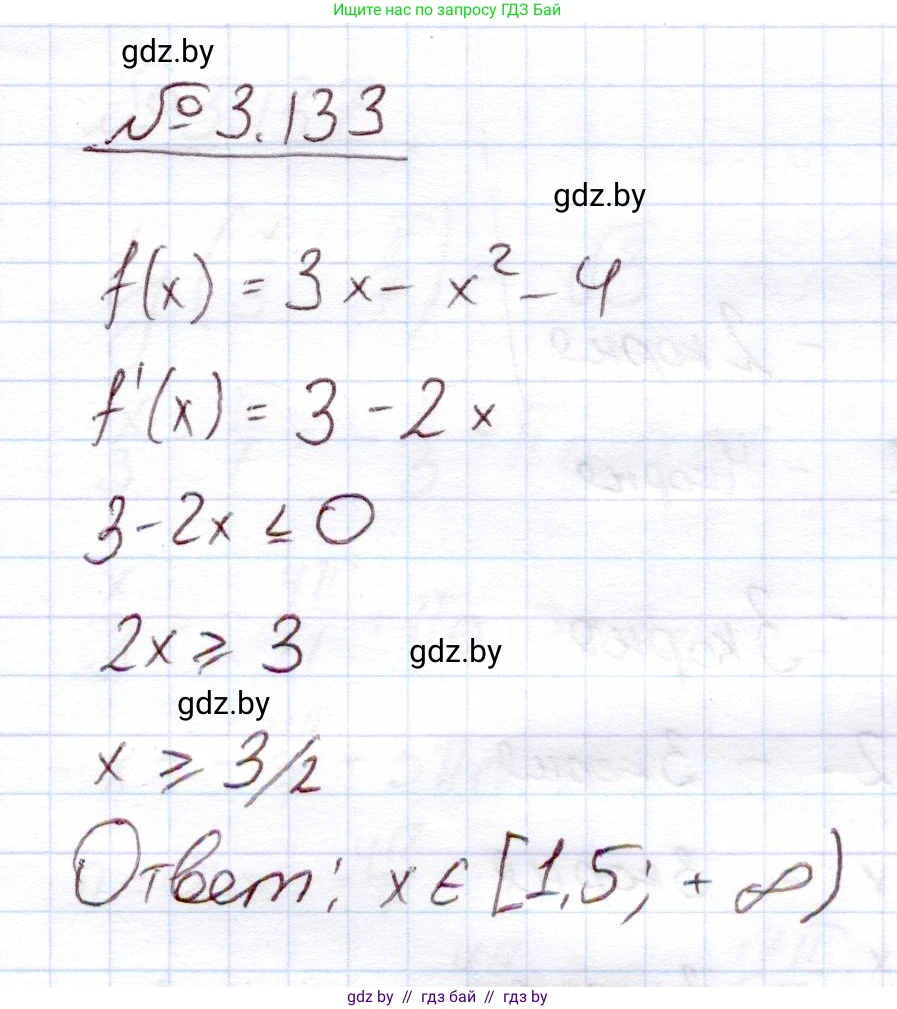 Ищите нас по запросу ГДЗ Бай
gdz.by
№ 3.133
gdz.by
f(x) = 3x - x² - 4
f'(x) = 3 - 2x
3 - 2x ≤ 0
2x ⩾ 3
gdz.by
gdz.by
x ⩾ 3/2
Ответ: x ∈ [1,5; +∞)
gdz.by // гдз бай // гдз by